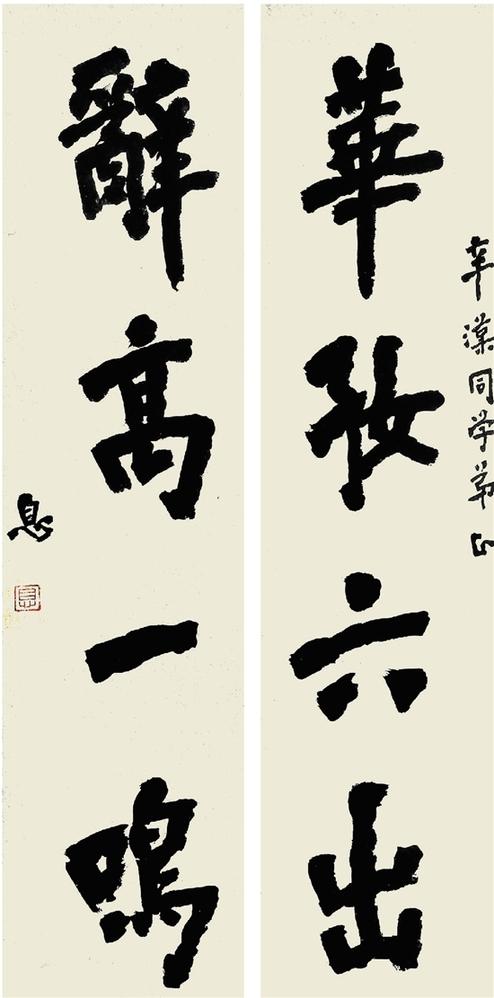 華好六出
辭高一鳴
辛漢同学弟正
息